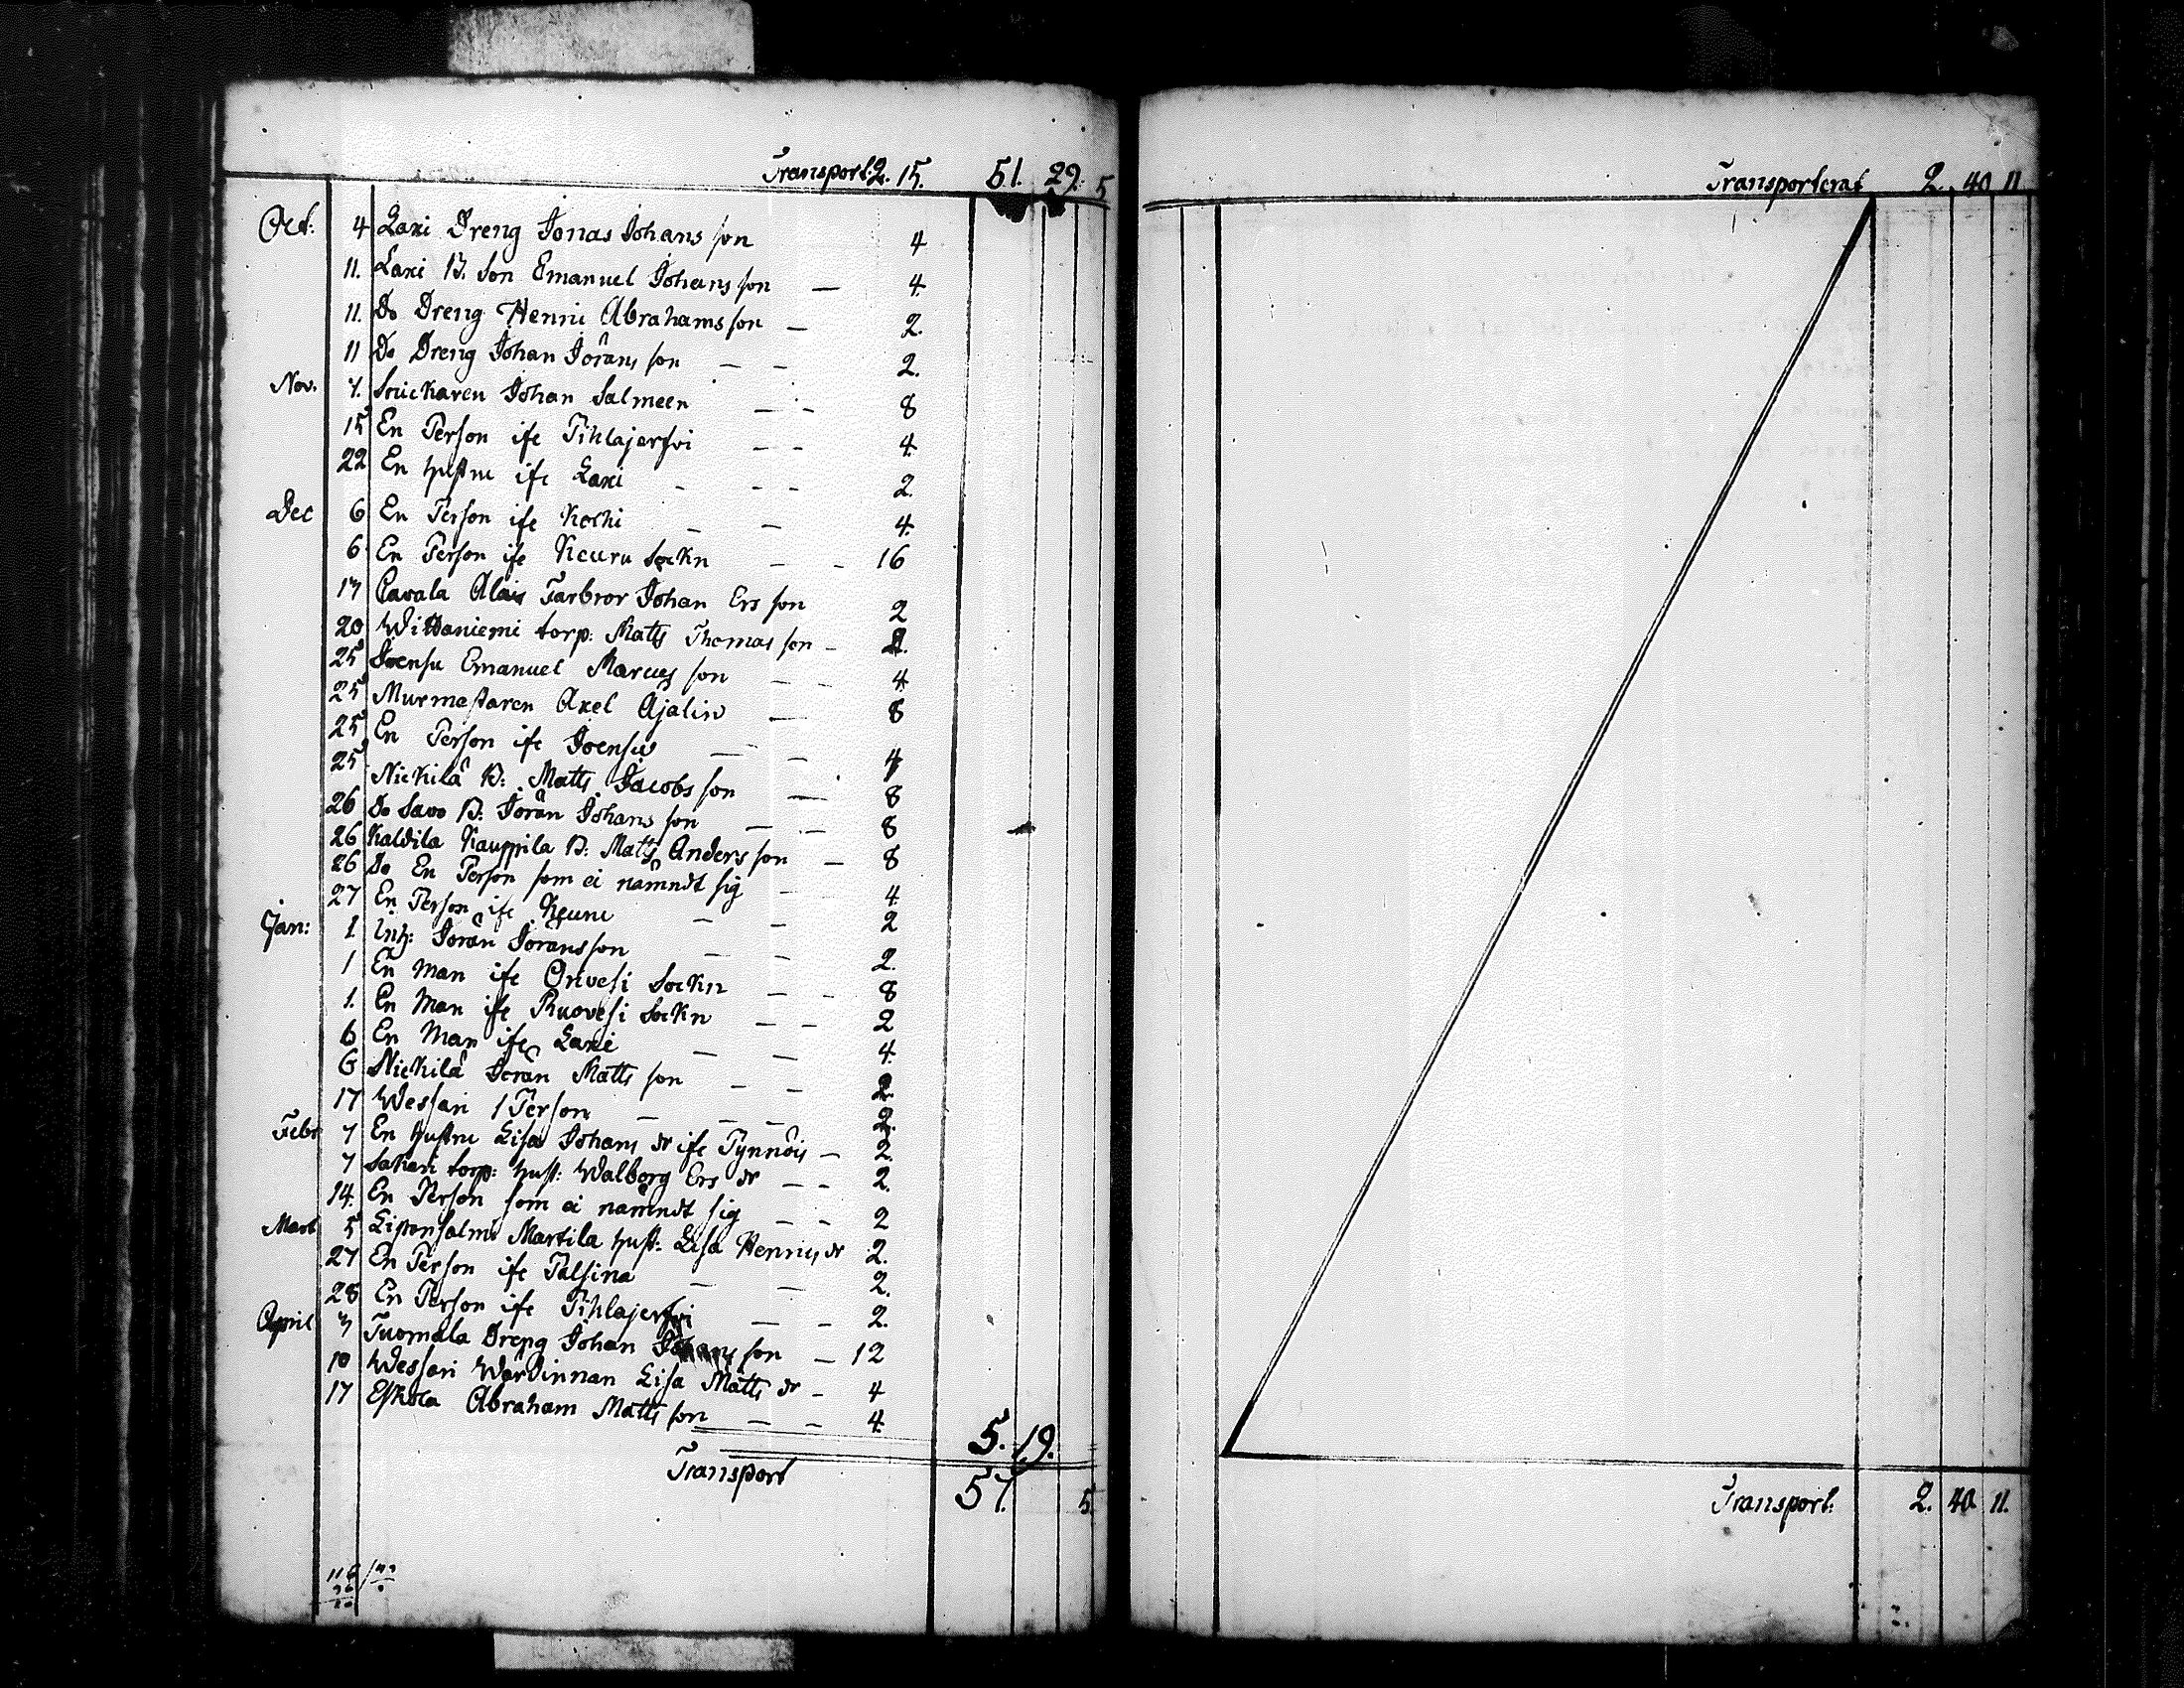 Transport. 2. 15. 51. 29. 5
Oct: 4 Laxi Dreng Jonas Johansson 4
11. Laxi B. Son Emanuel Johansson — 4.
11. Do Dreng Henric Abrahamsson — 2.
11 Do Dreng Johan Jöransson — — 2.
Nov. 7. Snickaren Johan Salmeen — — 8
15 En Person ifr Pihlajerfvi — — 4.
22 En hustru ifr Laxi — — — 2.
Dec 6 En Person ifr Koski — — 4.
6. En Person ifr Keuru Sockn — — 16
17 Pavala Alais Farbror Johan Ersson 2
20 Wittaniemi torp: Matts Thomasson —
25 Joensu Emanuel Marcusson — — 4.
25 Murmestaren Axel Ajalin — 8
25 En Person ifr Joensuu — — 4
25 Nickilä B: Matts Jacobsson — 8
26 Do Savo B: Jörän Johansson — — 8
26 Kaldila Kauppila B: Matts Andersson — 8
26 Do En Person som ei nämndt sig — 4
27 En Person ifr Keuru — — 2
Jan: 1. Inh: Jörän Jöransson — — 2.
1 En Man ifr Orivesi Sockn — — 8
1. En Man ifr Ruovesi Sockn — — 2
6 En Man ifr Laxi — — 4.
6 Nickilä Jörän Mattsson — — 2.
17 Wessari 1 Person — — — 2.
Febr 7 En hustru Lisa Johans dr ifr Pynnöis — 2.
7 Sakari torp: hust: Walborg Ers dr — — 2.
14. En Person som ei nämndt sig — — 2
Mart 5 Liponsalmi Martila hust: Lisa Henrics dr 2.
27 En Person ifr Palsina — — 2.
28 En Person ifr Pihlajerfvi — — 2.
April 3 Tuomala Dreng Johan Johansson — 12
10 Wessari Wärdinnan Lisa Matts dr — 4
17 Eskola Abraham Mattsson — — 4.
5. 19.
Transport 57. 5.
Transporterat 2. 40 11
Transport. 2. 40 11.